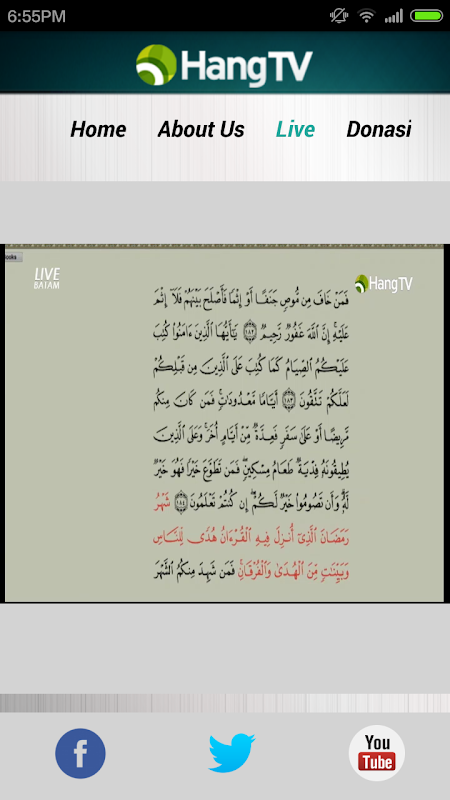 6:55PM
HangTV
Home About Us Live Donasi
LIVE
BATAM
HangTV
فَمَنْ خَافَ مِن مُّوصٍ جَنَفًا أَوْ إِثْمًا فَأَصْلَحَ بَيْنَهُمْ فَلَآ إِثْمَ
عَلَيْهِ ۚ إِنَّ اللَّهَ غَفُورٌ رَّحِيمٌ ١٨٢ يَٰٓأَيُّهَا الَّذِينَ ءَامَنُوا كُتِبَ
عَلَيْكُمُ الصِّيَامُ كَمَا كُتِبَ عَلَى الَّذِينَ مِن قَبْلِكُمْ
لَعَلَّكُمْ تَتَّقُونَ ١٨٣ أَيَّامًا مَّعْدُودَاتٍ ۚ فَمَن كَانَ مِنكُم
مَّرِيضًا أَوْ عَلَىٰ سَفَرٍ فَعِدَّةٌ مِّنْ أَيَّامٍ أُخَرَ ۚ وَعَلَى الَّذِينَ
يُطِيقُونَهُ فِدْيَةٌ طَعَامُ مِسْكِينٍ ۖ فَمَن تَطَوَّعَ خَيْرًا فَهُوَ خَيْرٌ
لَّهُ ۚ وَأَن تَصُومُوا خَيْرٌ لَّكُمْ ۖ إِن كُنتُمْ تَعْلَمُونَ ١٨٤ شَهْرُ
رَمَضَانَ الَّذِىٓ أُنزِلَ فِيهِ الْقُرْءَانُ هُدًى لِّلنَّاسِ
وَبَيِّنَٰتٍ مِّنَ الْهُدَىٰ وَالْفُرْقَانِ ۚ فَمَن شَهِدَ مِنكُمُ الشَّهْرَ
f
You
Tube